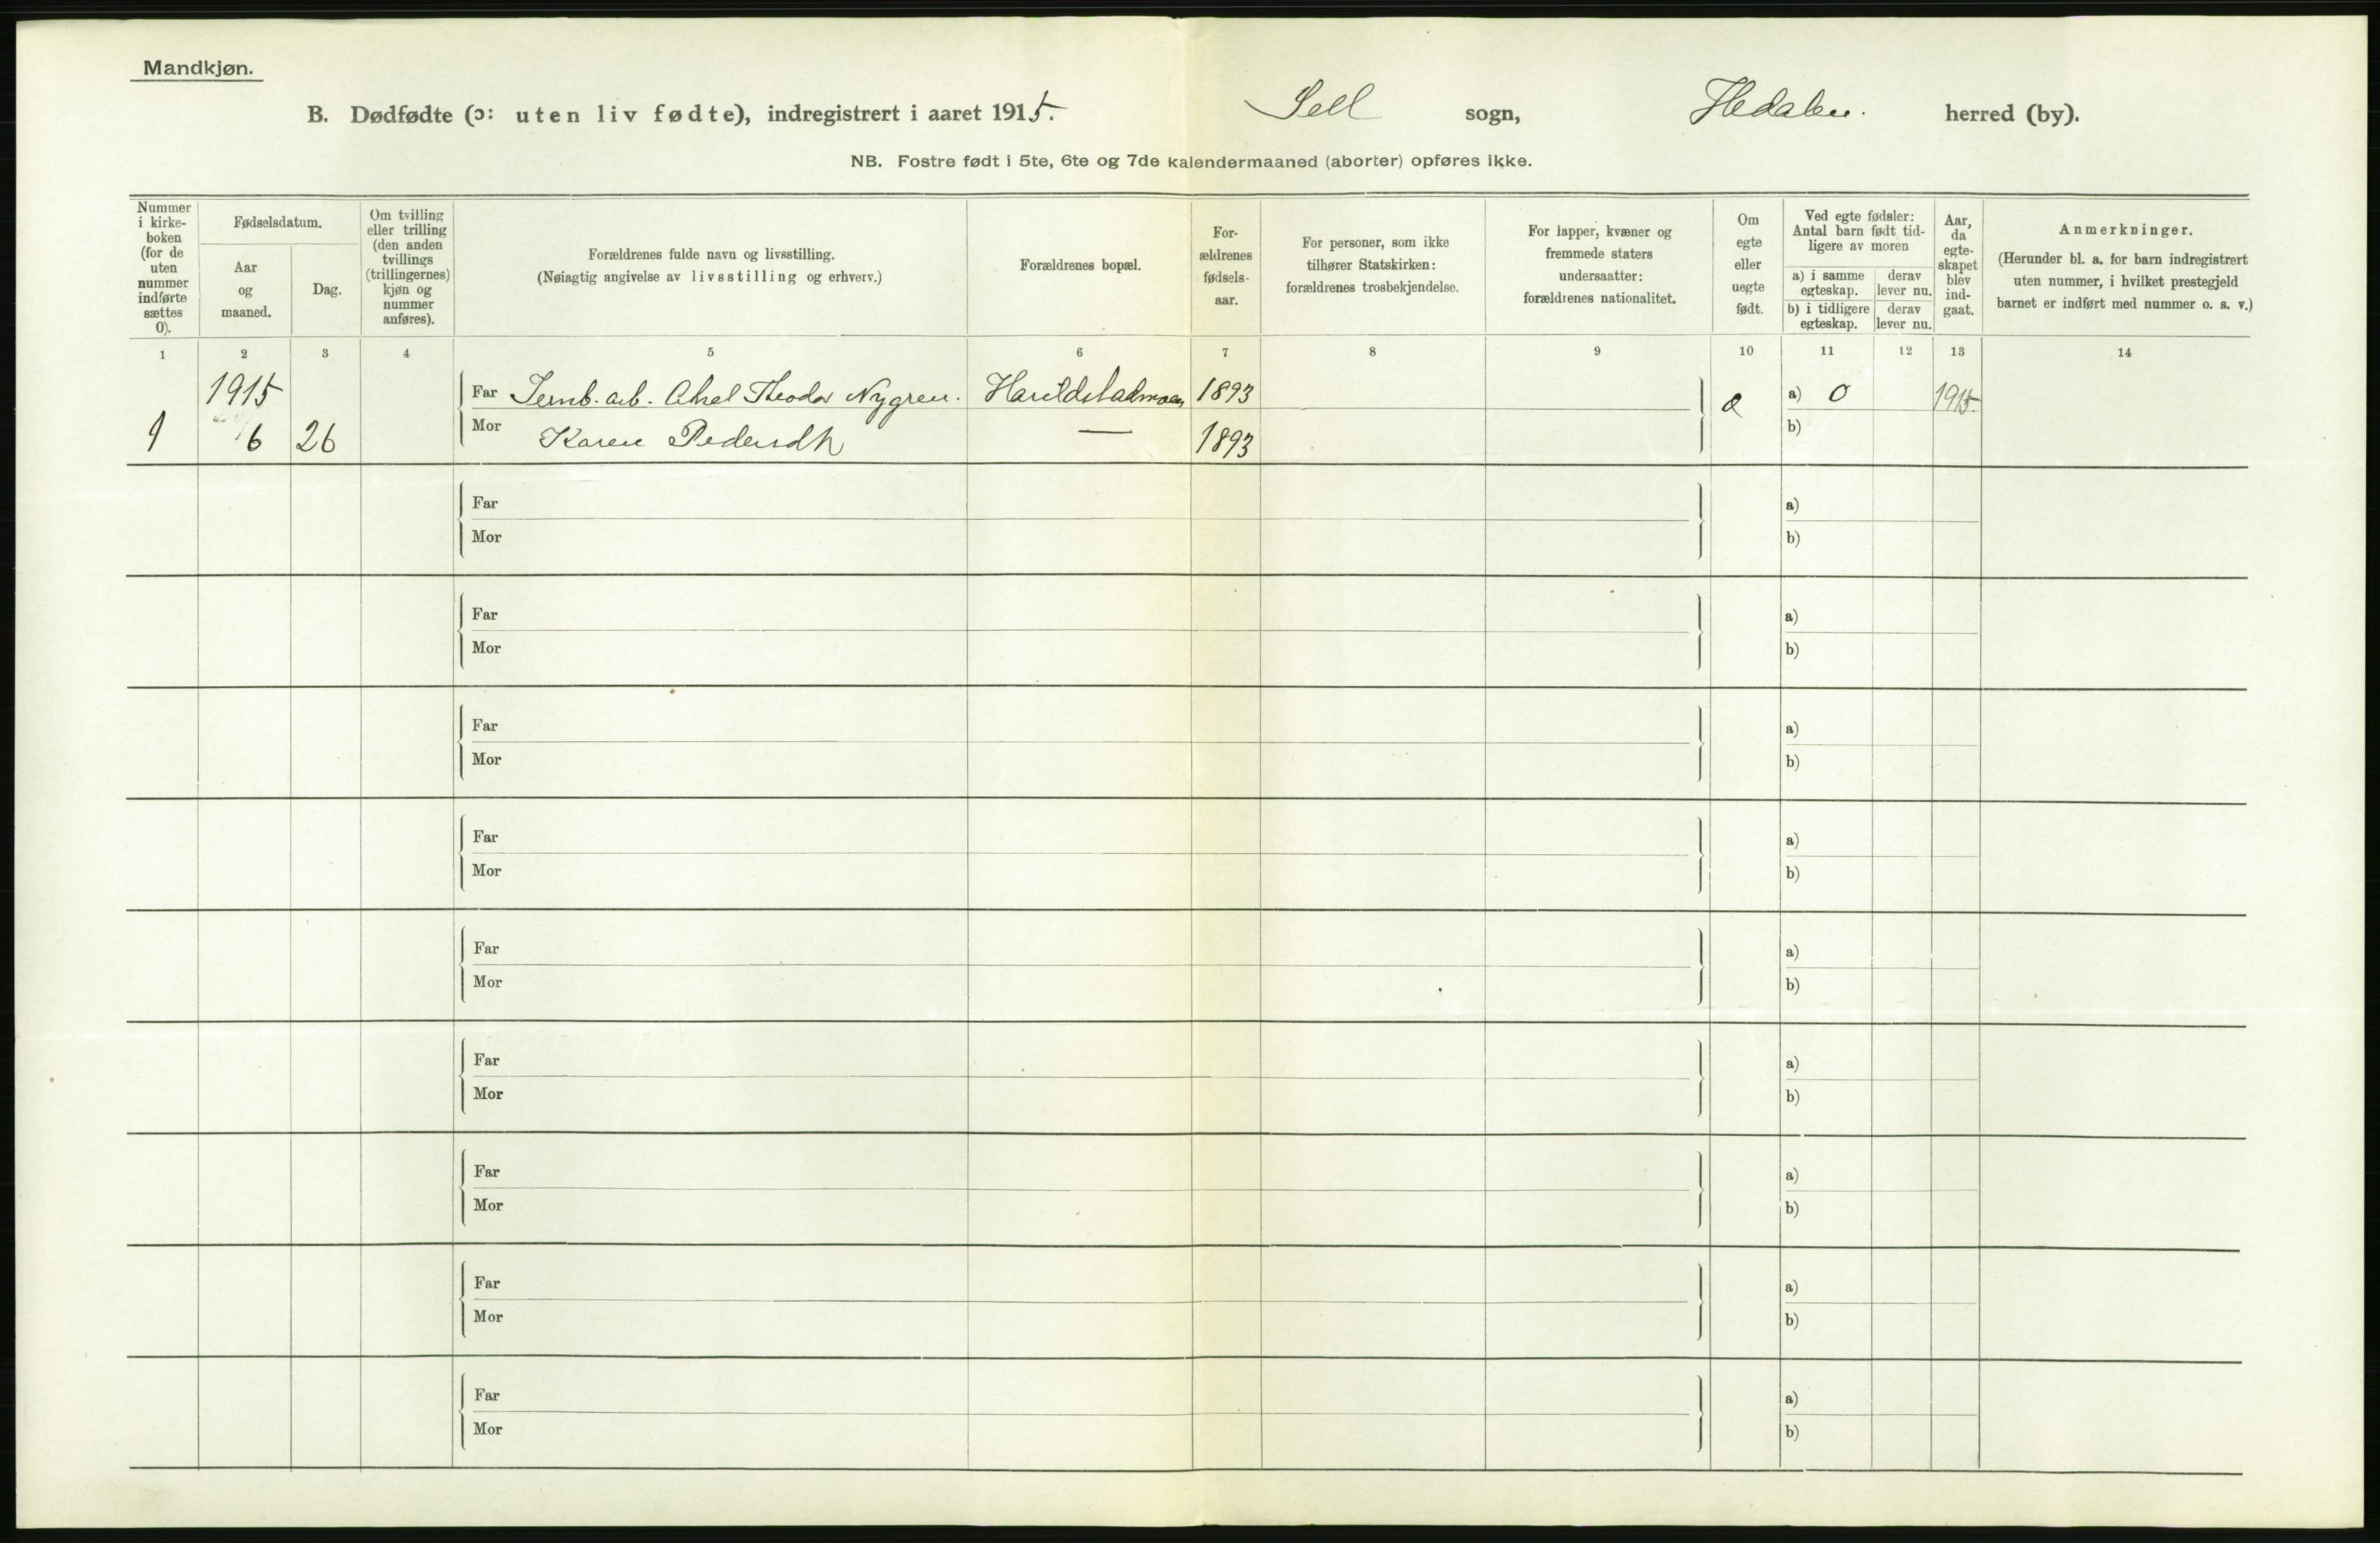 Mandkjøn.
B. Dødfødte (ɔ: uten liv fødte), indregistrert i aaret 1915. Sell sogn, Hedalen. herred (by).
NB. Fostre født i 5te, 6te og 7de kalendermaaned (aborter) opføres ikke.
Nummer
i kirke-
boken
(for de
uten
nummer
indførte
sættes
0).
Fødselsdatum.
Aar
og
maaned.
Dag.
Om tvilling
eller trilling
(den anden
tvillings
(trillingernes)
kjøn og
nummer
anføres).
Forældrenes fulde navn og livsstilling.
(Nøiagtig angivelse av livsstilling og erhverv.)
Forældrenes bopæl.
For-
ældrenes
fødsels-
aar.
For personer, som ikke
tilhører Statskirken:
forældrenes trosbekjendelse.
For lapper, kvæner og
fremmede staters
undersaatter:
forældrenes nationalitet.
Om
egte
eller
uegte
født.
Ved egte fødsler:
Antal barn født tid-
ligere av moren
a) i samme
egteskap.
derav
lever nu.
b) i tidligere
egteskap.
derav
lever nu.
Aar,
da
egte-
skapet
blev
ind-
gaat.
Anmerkninger.
(Herunder bl. a. for barn indregistrert
uten nummer, i hvilket prestegjeld
barnet er indført med nummer o. s. v.)
1 2 3 4 5 6 7 8 9 10 11 12 13 14
1915 Far Jernb. arb. Axel Theodor Nygren. 1893 a) 0 1915
1 6 26 Mor Karen Pedersdtr — 1893 e b)
Far a)
Mor b)
Far a)
Mor b)
Far a)
Mor b)
Far a)
Mor b)
Far a)
Mor b)
Far a)
Mor b)
Far a)
Mor b)
Far a)
Mor b)
Far a)
Mor b)